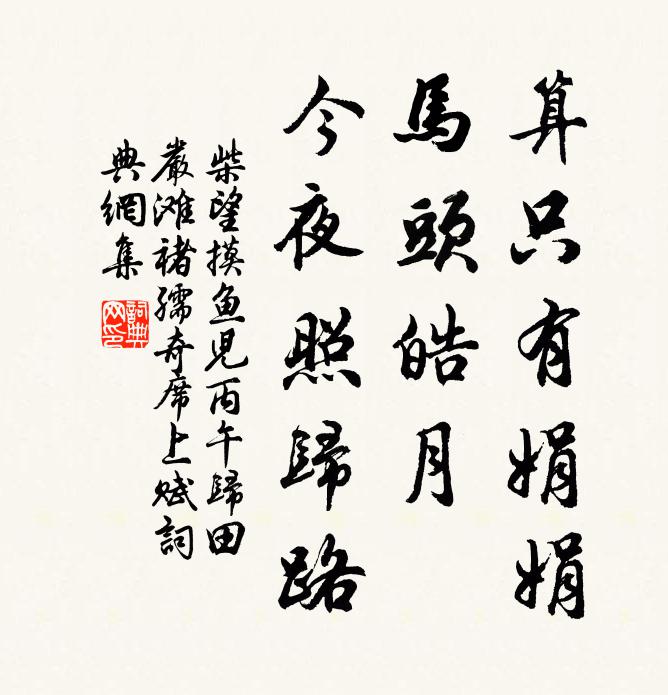 算只有娟娟
馬頭皓月
今夜照歸路
柴望摸魚兒丙午歸田
嚴滩褚孺奇席上賦詞
典網集
詞典
网印